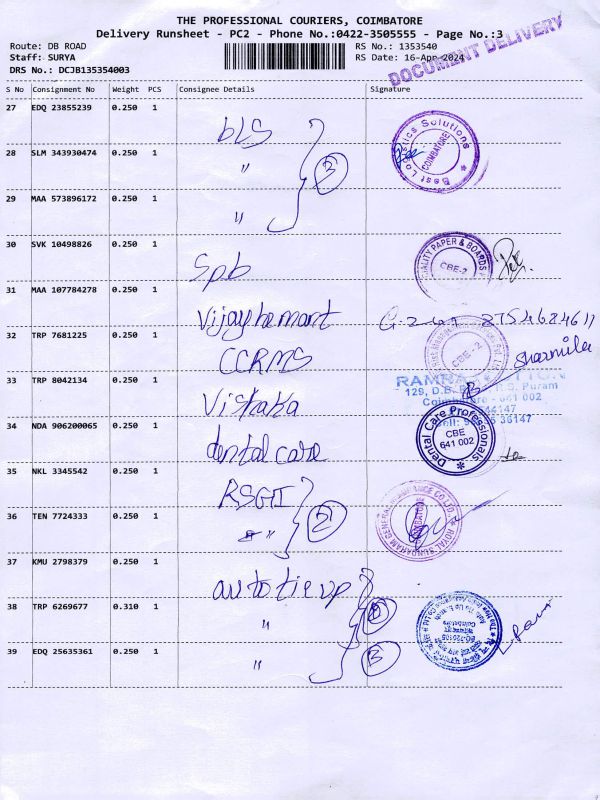 THE PROFESSIONAL COURIERS, COIMBATORE
Delivery Runsheet - PC2 - Phone No.:0422-3505555 - Page No.:3
Route: DB ROAD
Staff: SURYA
DRS No.: DCJB135354003
RS No.: 1353540
RS Date: 16-Apr-2024
DOCUMENT DELIVERY
S No Consignment No Weight PCS Consignee Details Signature
27 EDQ 23855239 0.250 1 bLS
Best Logistics Solutions * COIMBATORE
28 SLM 343930474 0.250 1 " 3
29 MAA 573896172 0.250 1 "
30 SVK 10498826 0.250 1 Spb
QUALITY PAPER & BOARDS CBE-2
31 MAA 107784278 0.250 1 Vijay hemant
32 TRP 7681225 0.250 1 CCRMS
CBE - 2
Sharmila
33 TRP 8042134 0.250 1 Vistaka
129, D.B. R.S. Puram
Coimbatore - 641 002
36147
34 NDA 906200065 0.250 1 dental care
Dental Care Professionals * CBE 641 002
35 NKL 3345542 0.250 1 RSGI
ROYAL SUNDARAM GENERAL INSURANCE CO LTD. COIMBATORE
36 TEN 7724333 0.250 1 " 2
37 KMU 2798379 0.250 1 auto tie up
38 TRP 6269677 0.310 1 "
39 EDQ 25635361 0.250 1 " 3